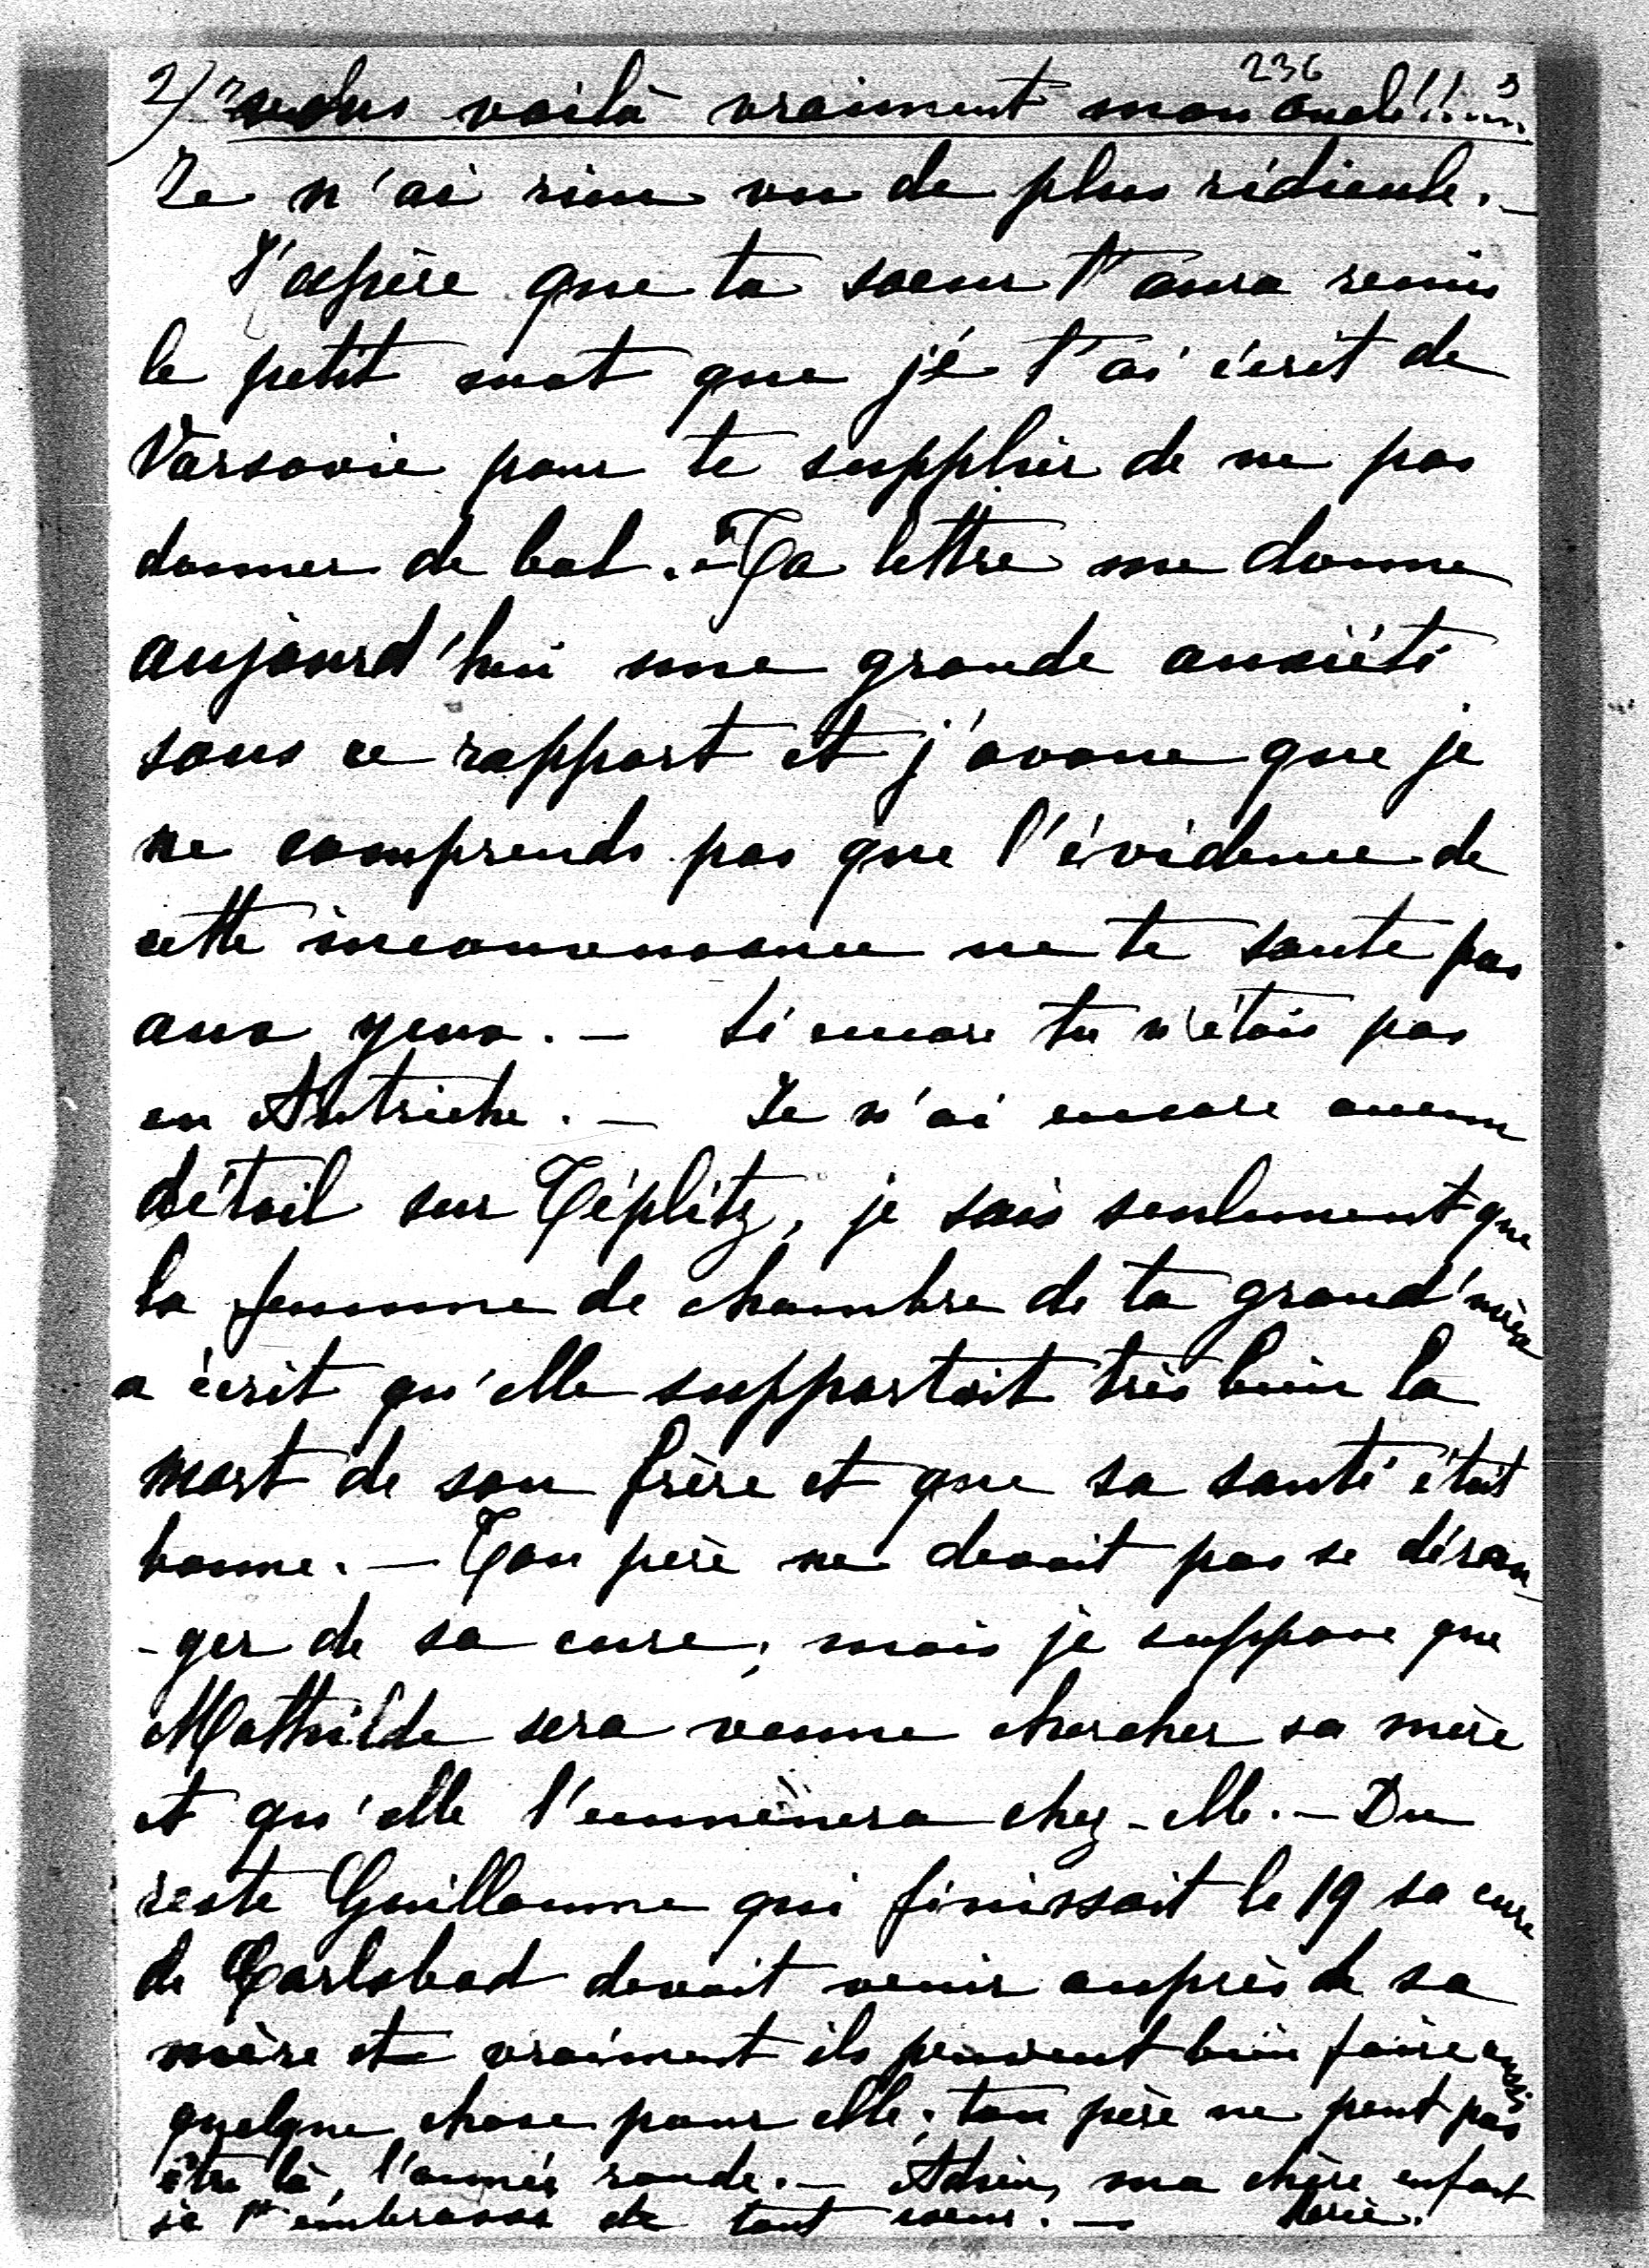 236
2) vous voilà vraiment mon oncle!!....
Je n'ai rien vu de plus ridicule. _
J'espère que ta soeur t'aura remis
le petit mot que je t'ai écrit de
Varsovie pour te supplier de ne pas
donner de bal. - Ta lettre me donne
aujourd'hui une grande anxiété
sous ce rapport et j'avoue que je
ne comprends pas que l'évidence de
cette inconvenance ne te saute pas
aux yeux. — Si encore tu n'étais pas
en Autriche. — Je n'ai encore aucun
détail sur Téplitz, je sais seulement que
la femme de chambre de ta grand'mère
a écrit qu'elle supportait très bien la
mort de son frère et que sa santé était
bonne. — Ton père ne devait pas se déran-
-ger de sa cure; mais je suppose que
Mathilde sera venue chercher sa mère
et qu'elle l'emmènera chez-elle. — Du
reste Guillaume qui finissait le 19 sa cure
de Carlsbad devait venir auprès de sa
mère et vraiment ils peuvent bien faire aussi
quelque chose pour elle; ton père ne peut pas
être là, l'année ronde. — Adieu, ma chère enfant
je t'embrasse de tout coeur. —